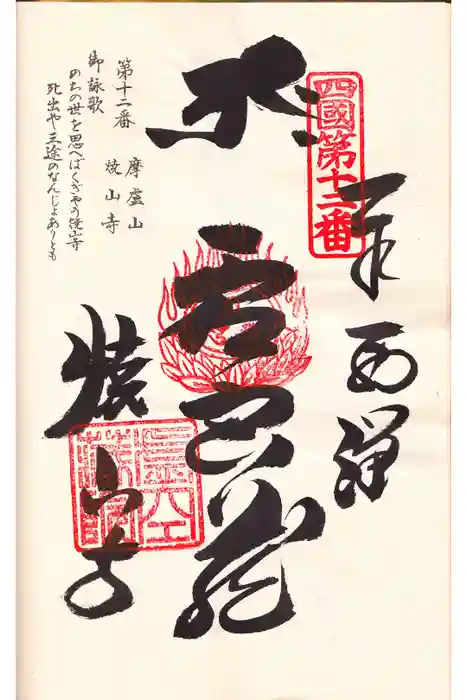 四國第十二番
奉
虚空蔵
焼山寺
第十二番
摩盧山
焼山寺
御詠歌
のちの世を思へばくぎやう焼山寺
死出や三途のなんじょありとも